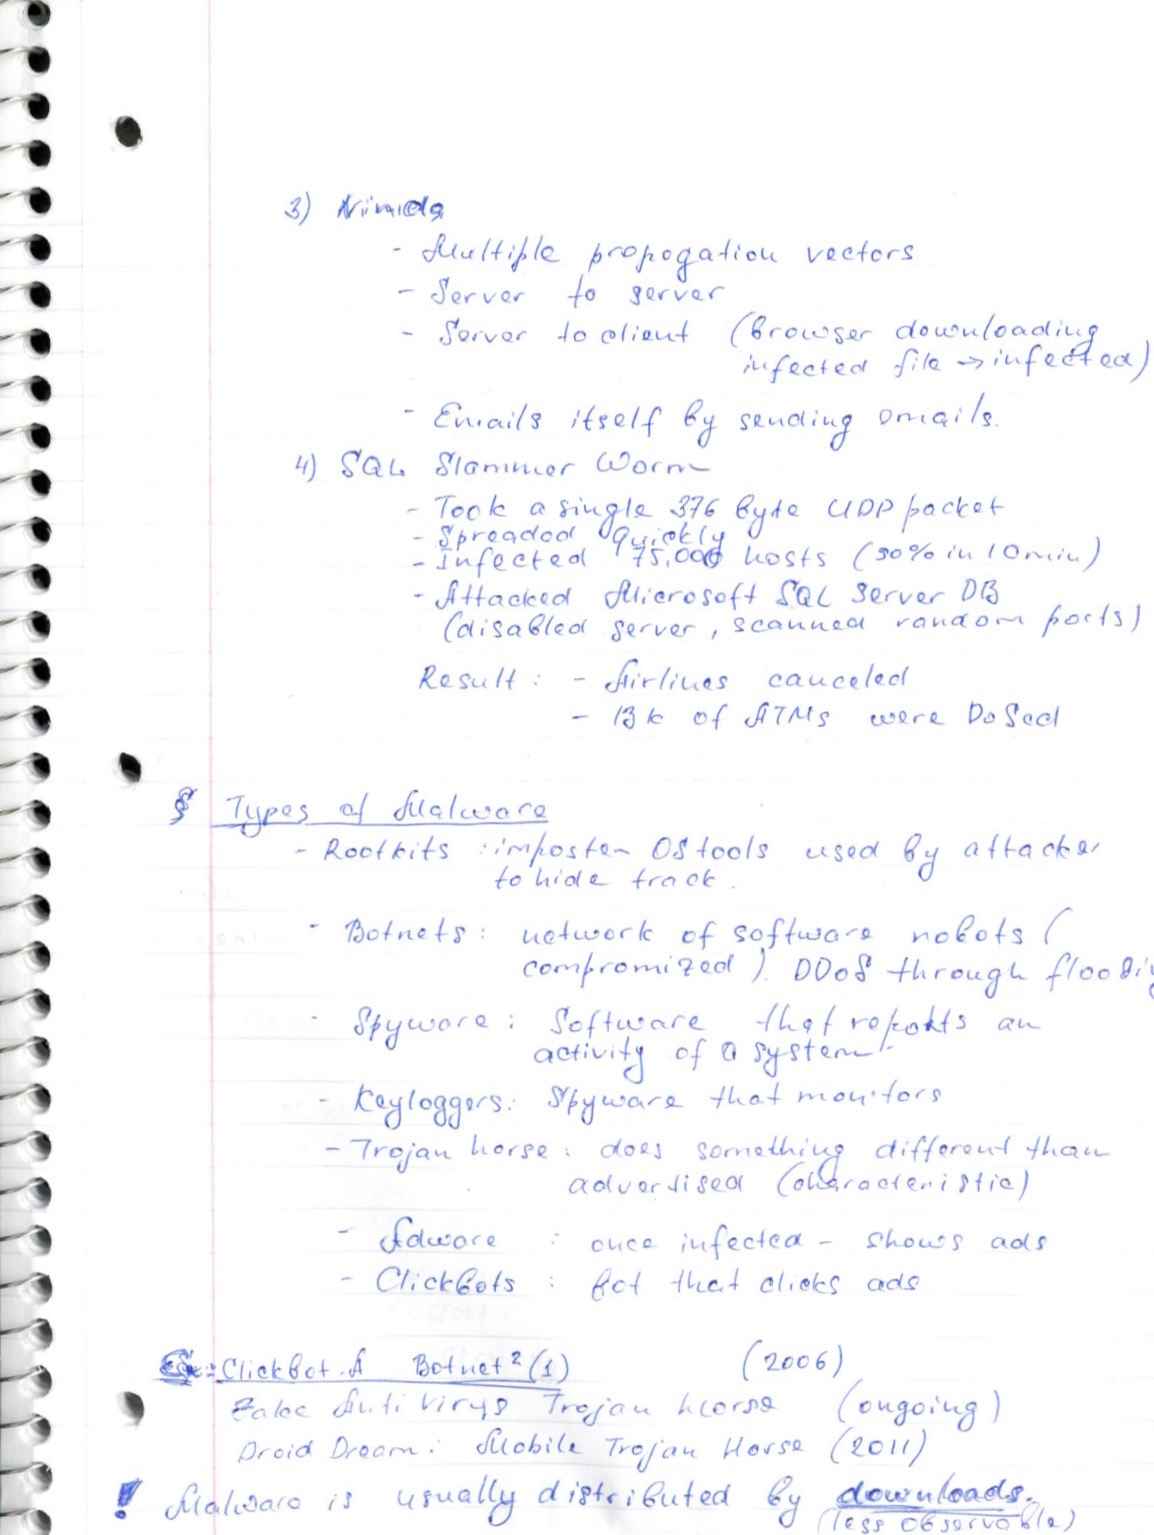 3) Nimda
- Multiple propogation vectors
- Server to server
- Server to client (browser downloading
infected file → infected)
- Emails itself by sending emails.
4) SQL Slammer Worm
- Took a single 376 byte UDP packet
- Spreaded quickly
- Infected 75,000 hosts (90% in 10 min)
- Attacked Microsoft SQL Server DB
(disabled server, scanned random ports)
Result: - Airlines canceled
- 13k of ATMs were DoSed
§ Types of Malware
- Rootkits : imposter OS tools used by attacker
to hide track.
- Botnets: network of software robots (
compromized). DDoS through flooding
- Spyware: Software that reports an
activity of a system.
- Keyloggers: Spyware that monitors
- Trojan horse: does something different than
advertised (characteristic)
- Adware : once infected - shows ads
- Clickbots : bot that clicks ads
Ex: Clickbot.A Botnet² (1) (2006)
Fake Anti Virus Trojan horse (ongoing)
Droid Dream: Mobile Trojan Horse (2011)
! Malware is usually distributed by downloads.
(less observable)